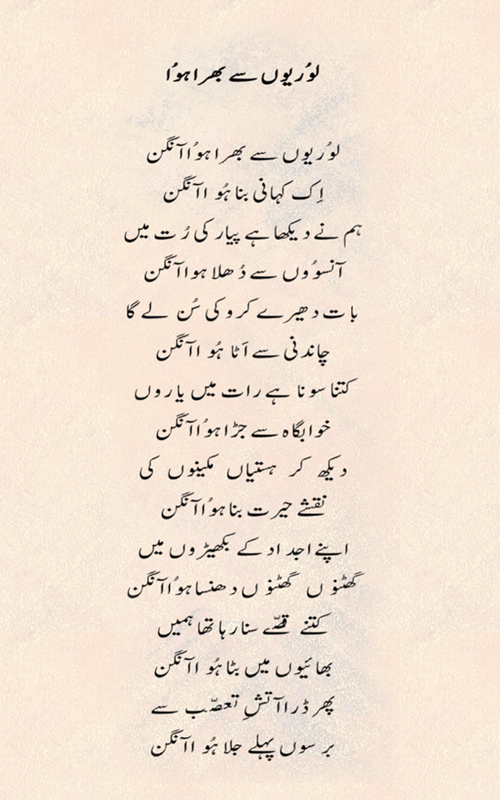 لوُریوں سے بھرا ہوُا
لوُریوں سے بھرا ہوُا آنگن
اِک کہانی بنا ہُو ا آنگن
ہم نے دیکھا ہے پیار کی رُت میں
آنسوُوں سے دُھلا ہوا آنگن
بات دھیرے کرو کی سُن لے گا
چاندنی سے اَٹا ہُو ا آنگن
کتنا سونا ہے رات میں یاروں
خوابگاہ سے جڑا ہوُا آنگن
دیکھ کر ہستیاں مکینوں کی
نقشئے حیرت بنا ہوُا آنگن
اپنے اجداد کے بکھیڑوں میں
گھٹنوُں گھٹنوُں دھنسا ہوُا آنگن
کتنے قصّے سنا رہا تھا ہمیں
بھائیوں میں بٹا ہُو ا آنگن
پھر ڈرا آتشِ تعصّب سے
برسوں پہلے جلا ہُو ا آنگن